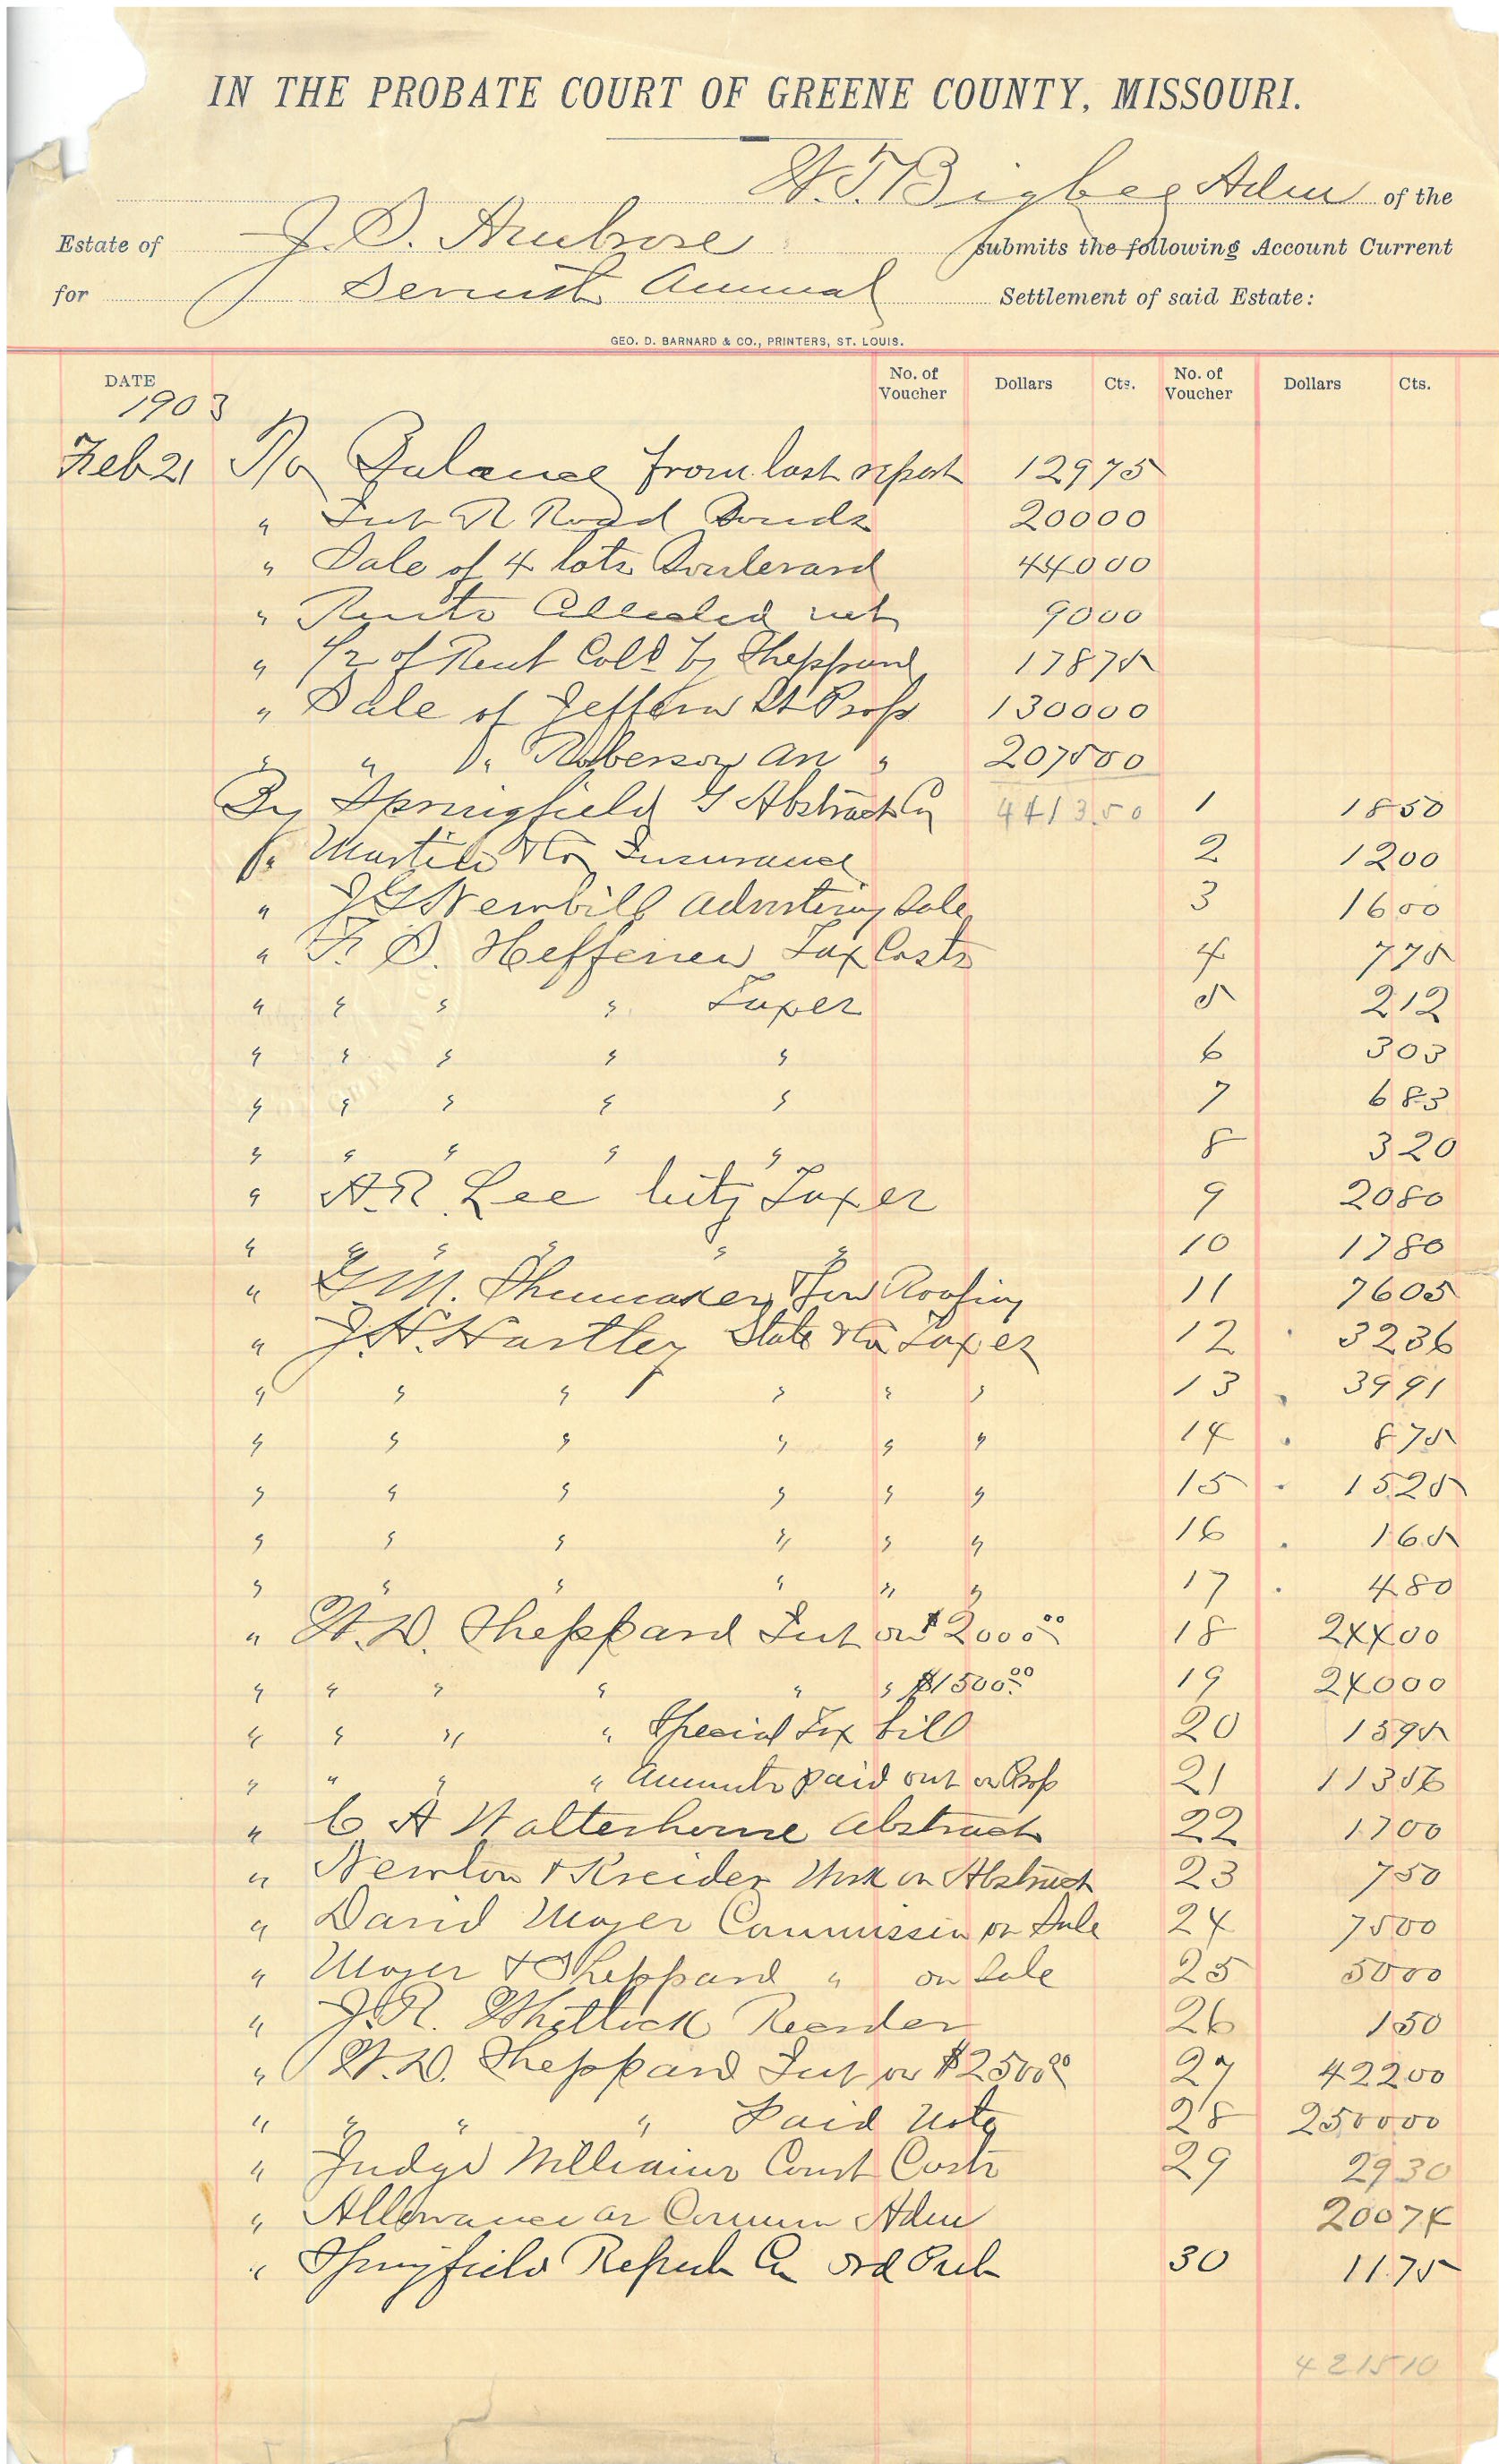 IN THE PROBATE COURT OF GREENE COUNTY, MISSOURI.
W. T. Bigbee Adm of the
Estate of J. S. Ambrose submits the following Account Current
for Seventh Annual Settlement of said Estate:
GEO. D. BARNARD & CO., PRINTERS, ST. LOUIS.
DATE No. of Voucher Dollars Cts. No. of Voucher Dollars Cts.
1903
Feb 21 To Balance from last report 129 75
" Int R Road Bonds 200 00
" Sale of 4 lots Boulevard 440 00
" Rents Collected net 90 00
" 1/2 of Rent Cold by Sheppard 178 75
" Sale of Jefferson St Prop 1300 00
" " " Roberson av " 2075 00
4413.50
By Springfield G Abstract Co 1 18 50
" Martin & Co Insurance 2 12 00
" J G Newbill advertising Sale 3 16 00
" F. S. Heffernen Tax Costs 4 7 75
" " " " Taxes 5 2 12
" " " " " 6 3 03
" " " " " 7 6 83
" " " " " 8 3 20
" A. R. Lee City Taxes 9 20 80
" " " " " " 10 17 80
" G M. Shumaker, Tin Roofing 11 76 05
" J. H. Hartley State & Co Taxes 12 32 36
" " " " " " 13 39 91
" " " " " " 14 8 75
" " " " " " 15 15 25
" " " " " " 16 1 65
" " " " " " 17 4 80
" W. D. Sheppard Int on $2000.00 18 244 00
" " " " " " $1500.00 19 240 00
" " " " Special Tax bill 20 15 95
" " " " Amounts paid out on Prop 21 113 56
" C A Walterhouse Abstract 22 17 00
" Newton & Kreider Work on Abstract 23 7 50
" David Moyer Commission on Sale 24 75 00
" Moyer & Sheppard " on Sale 25 50 00
" J. R. Whitlock Recorder 26 1 50
" W. D. Sheppard Int on $2500.00 27 422 00
" " " " Paid Note 28 2500 00
" Judge Williams Court Costs 29 29 30
" Allowance as Comm Adm 200 74
" Springfield Repub Co ord Pub 30 11.75
4215 10